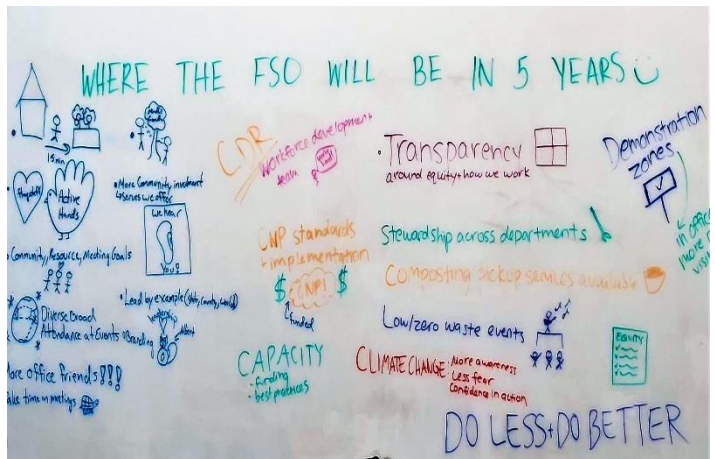 WHERE THE FSO WILL BE IN 5 YEARS
15 min
Active
Hands
• More Community involvment
we hear
You!
• Community, Resource, Meeting Goals
Diverse Broad
Attendance at Events
Branding
• Lead by example
More office friends!!!
time in meetings
CDR
Workforce development
team
CNP standards
implementation
$ CNP! $
funded
CAPACITY
• funding
• best practices
• Transparency
around equity + how we work
Stewardship across departments
Composting pickup services available
Low/zero waste events
CLIMATE CHANGE: • More awareness
• Less fear
confidence in action
Demonstration
zones
in office
more
EQUITY
DO LESS + DO BETTER